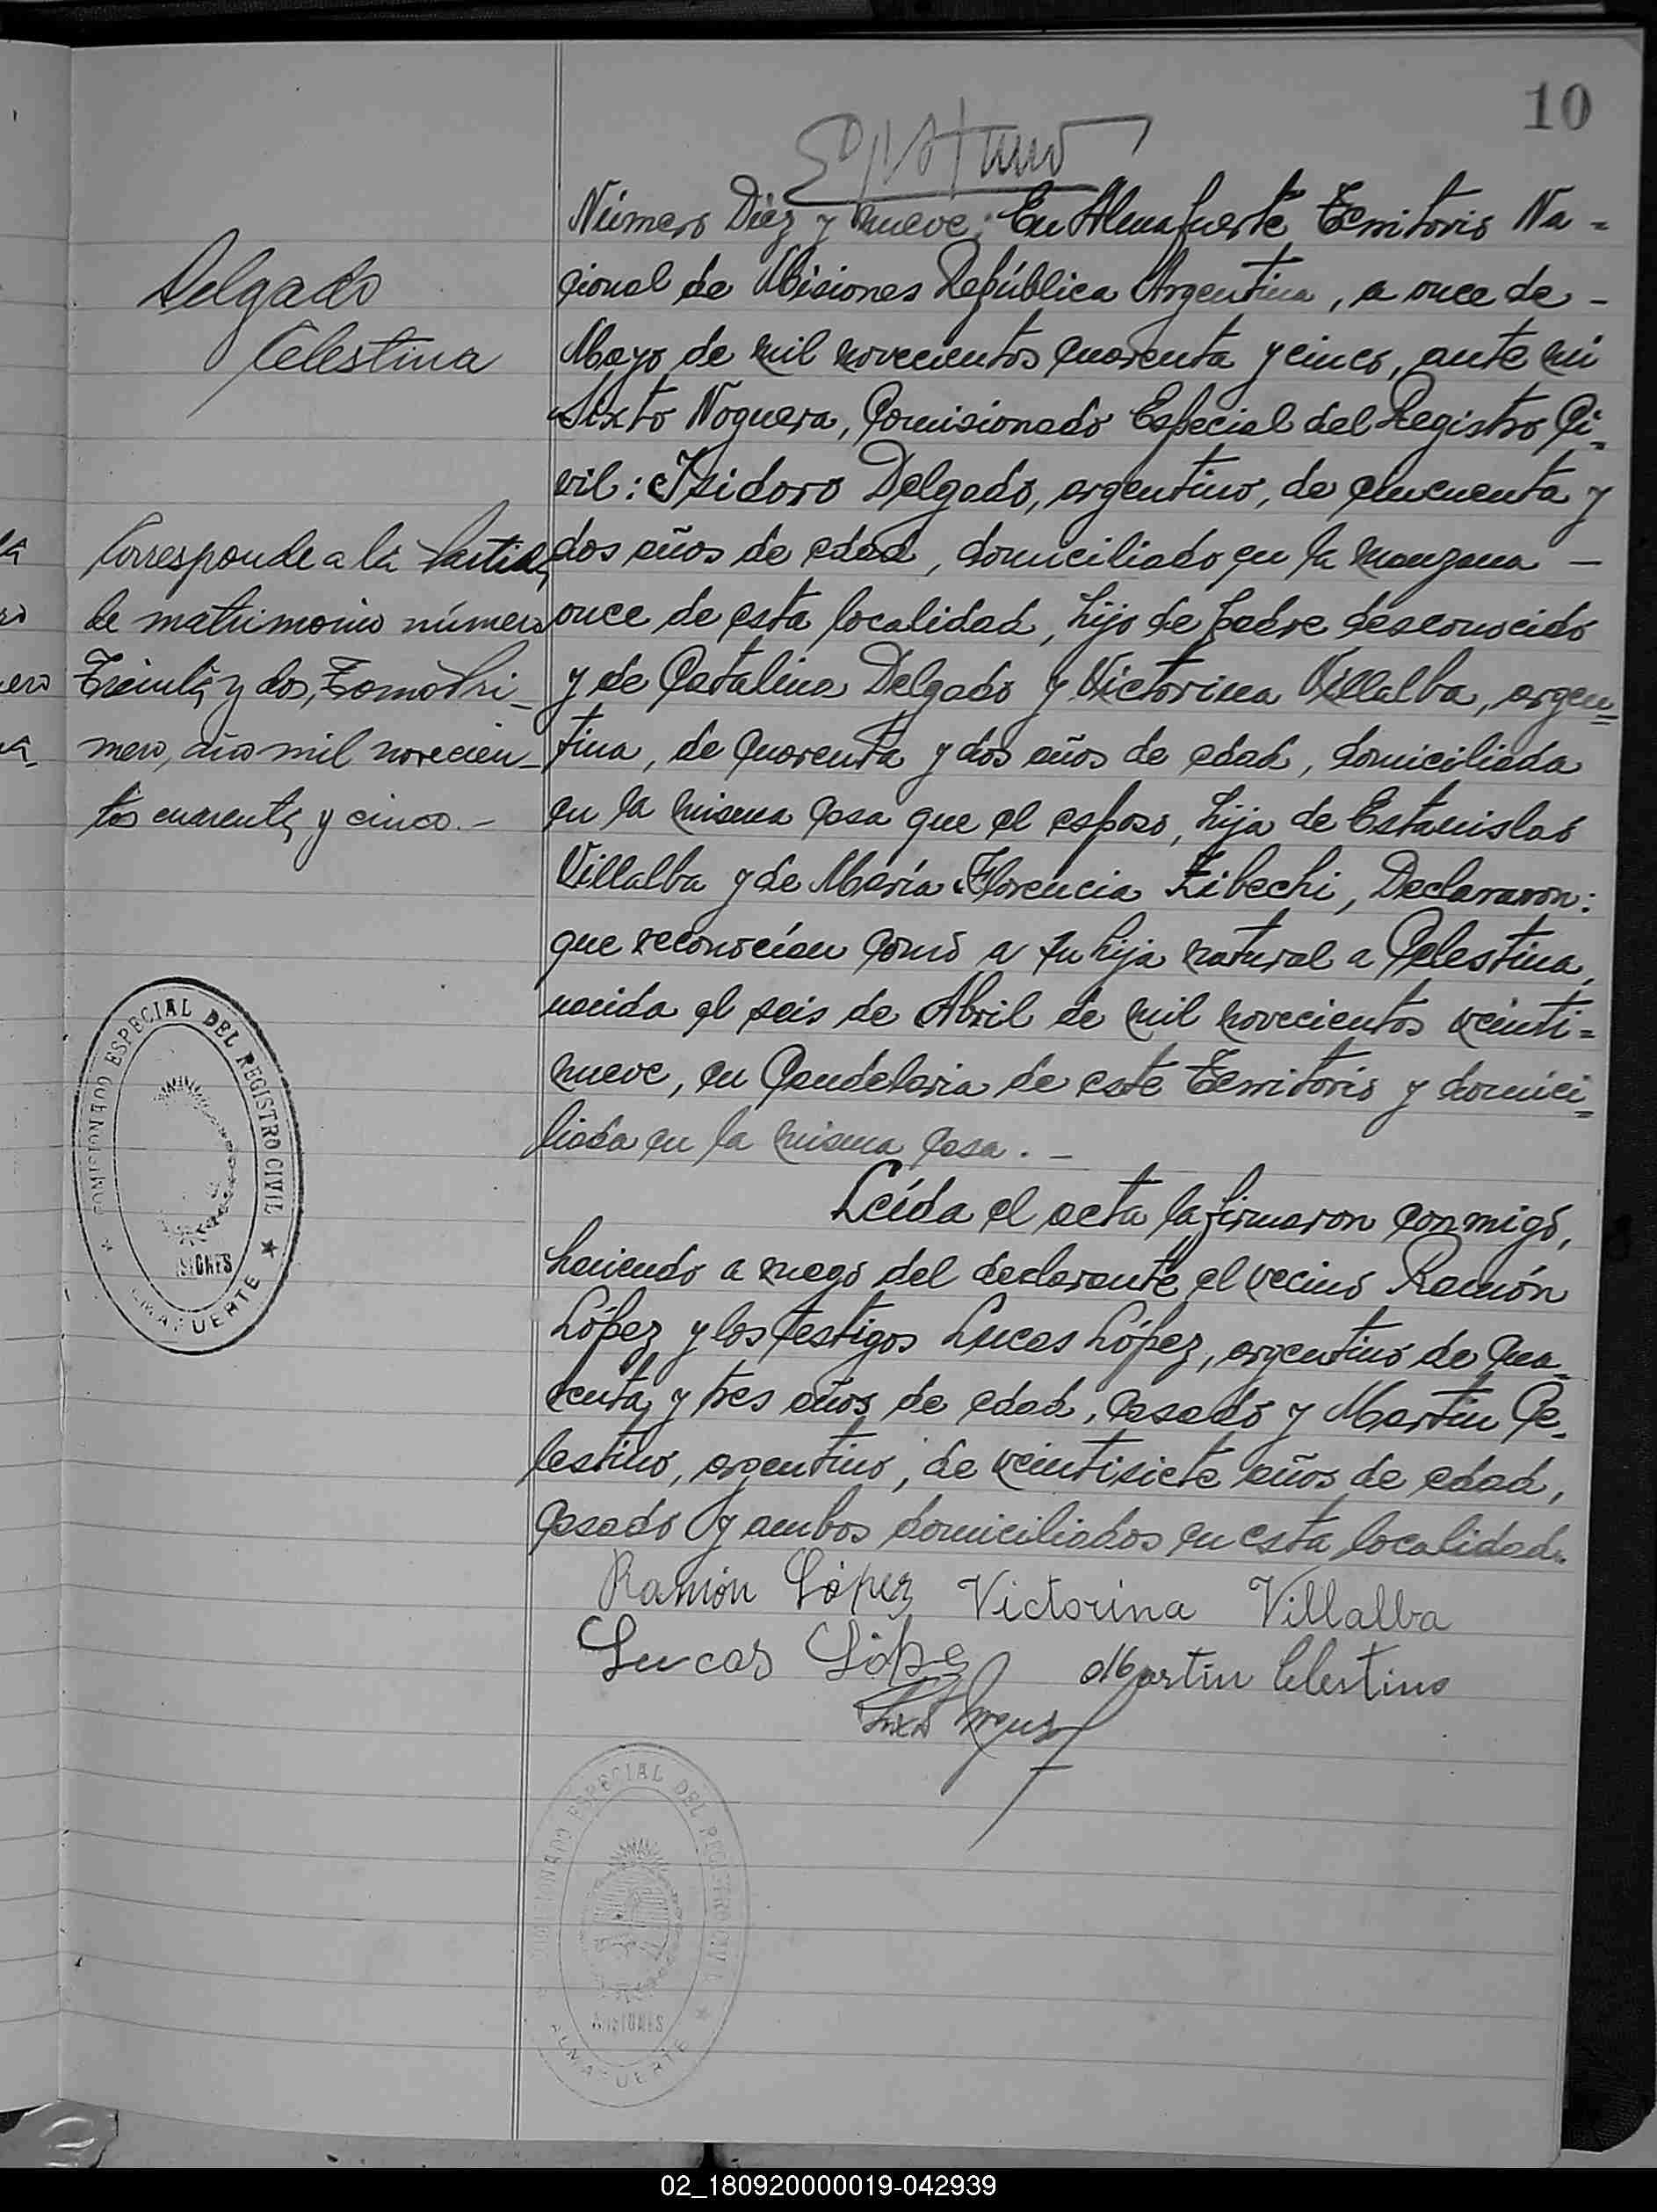 10
Número Diez y nueve: En Almafuerte Territorio Na=
cional de Misiones República Argentina, a once de -
Mayo de mil novecientos cuarenta y cinco, ante mi
Sixto Noguera, Comisionado Especial del Registro Ci=
vil: Isidoro Delgado, argentino, de cincuenta y
dos años de edad, domiciliado en la manzana -
once de esta localidad, hijo de padre desconocido
y de Catalina Delgado y Victorina Villalba, argen=
tina, de cuarenta y dos años de edad, domiciliada
en la misma casa que el esposo, hija de Estanislao
Villalba y de María Florencia Zibechi, Declararon:
que reconocían como a su hija natural a Celestina,
nacida el seis de Abril de mil novecientos veinti=
nueve, en Candelaria de este Territorio y domici=
liada en la misma casa. -
Leída el acta la firmaron conmigo,
haciendo a ruego del declarante el vecino Ramón
López y los testigos Lucas López, argentino de cua=
renta y tres años de edad, casado y Martín Ce=
lestino, argentino, de veintisiete años de edad,
casado y ambos domiciliados en esta localidad.
Ramón López Victorina Villalba
Lucas López Martín Celestino
Delgado
Celestina
Corresponde a la Partida
de matrimonio número
Treinta y dos, Tomo Pri-
mero, año mil novecien-
tos cuarenta y cinco.-
COMISIONADO ESPECIAL DEL REGISTRO CIVIL
MISIONES
ALMAFUERTE
COMISIONADO ESPECIAL DEL REGISTRO CIVIL
MISIONES
ALMAFUERTE
02_180920000019-042939